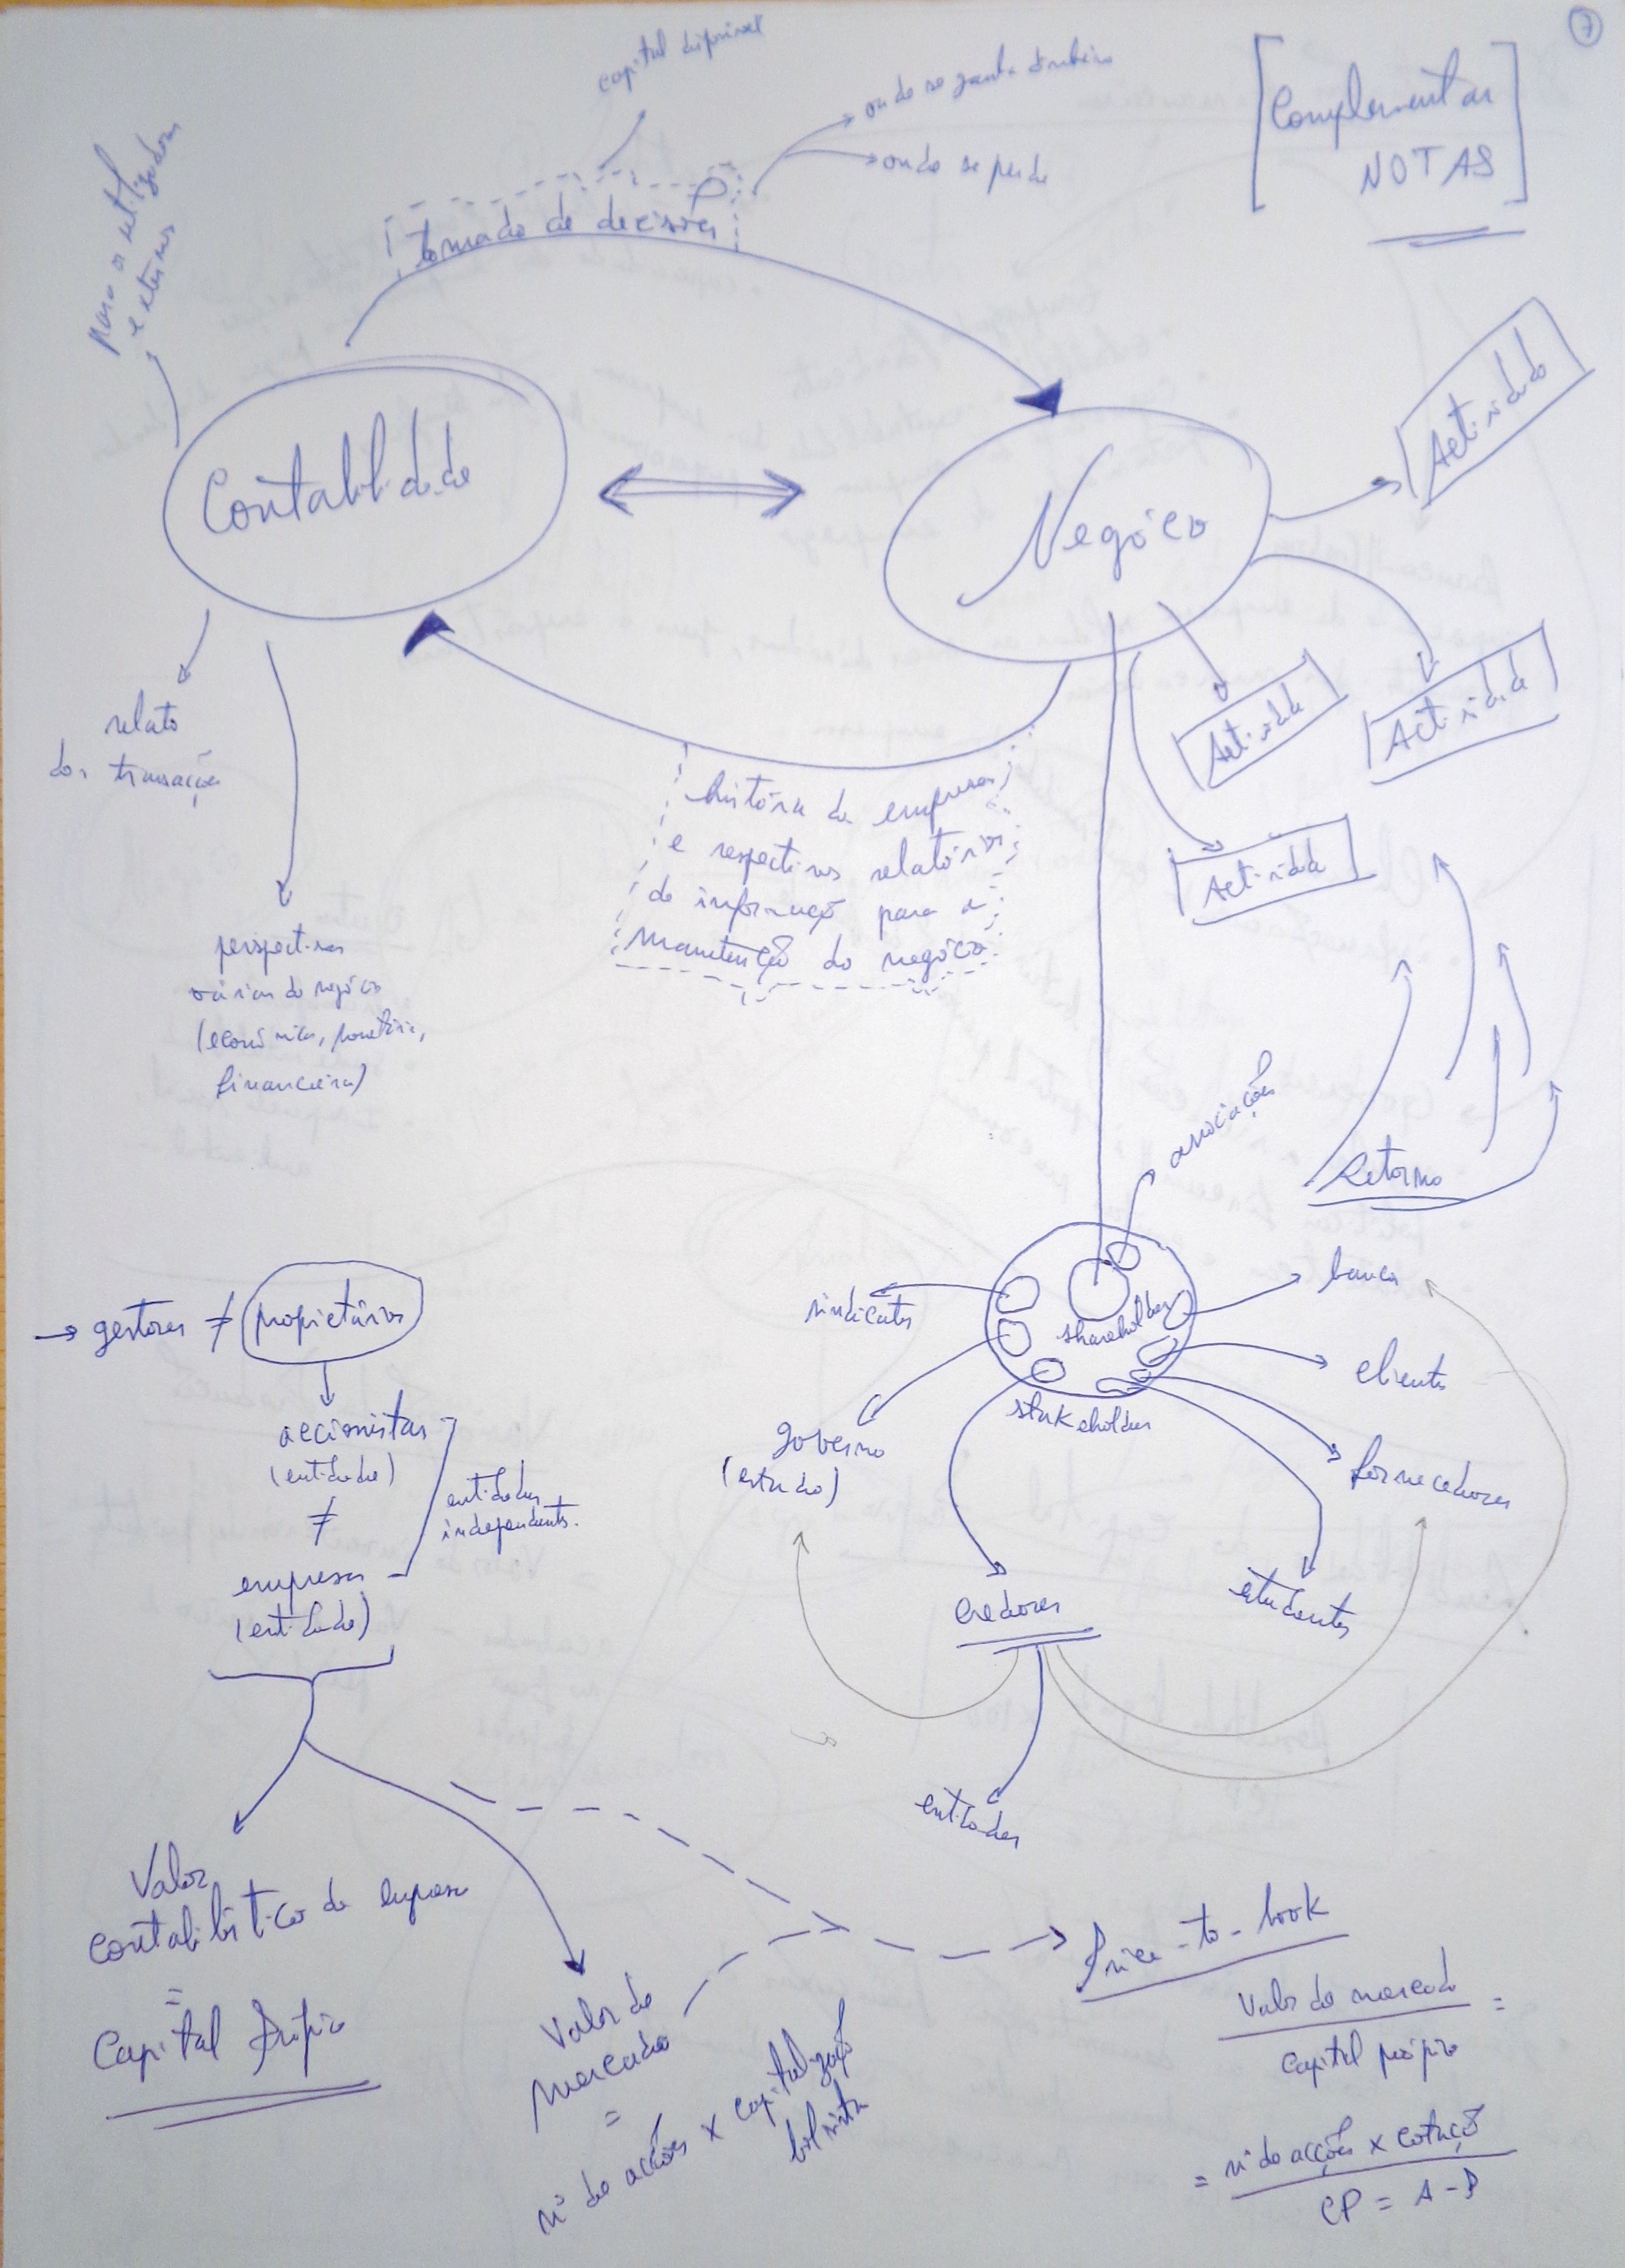 7
[Complementar
NOTAS]
capital
onde se ganha dinheiro
onde se perde
tomada de decisões
para os utilizadores
externos
Contabilidade
Negócio
Actividade
Actividade
Actividade
Actividade
relato
das transacções
perspectivas
várias do negócio
(económica, monetária,
financeira)
história da empresa
e respectivos relatórios
de informação para a
manutenção do negócio
Retorno
associações
sindicatos
shareholders
stakeholders
banca
clientes
fornecedores
estudantes
governo
(estado)
credores
entidades
→ gestores ≠ propietários
accionistas
(entidade)
≠
empresa
(entidade)
entidades
independentes.
Valor
contabilístico da empresa
=
Capital Própio
Valor de
mercado
=
nº de acções x capitalização
bolsista
Price-to-book
Valor de mercado =
Capital própio
= nº de acções x cotação
CP = A - P